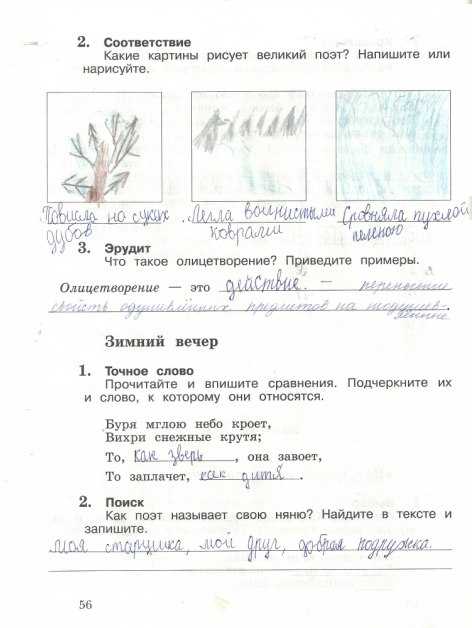 2. Соответствие
Какие картины рисует великий поэт? Напишите или
нарисуйте.
Повисла на суках Легла волнистыми Сровняла пухлой
дубов коврами пеленою
3. Эрудит
Что такое олицетворение? Приведите примеры.
Олицетворение — это действие –
свойств одушевлённых предметов на
Зимний вечер
1. Точное слово
Прочитайте и впишите сравнения. Подчеркните их
и слово, к которому они относятся.
Буря мглою небо кроет,
Вихри снежные крутя;
То, как зверь, она завоет,
То заплачет, как дитя.
2. Поиск
Как поэт называет свою няню? Найдите в тексте и
запишите.
моя старушка, мой друг, добрая подружка.
56